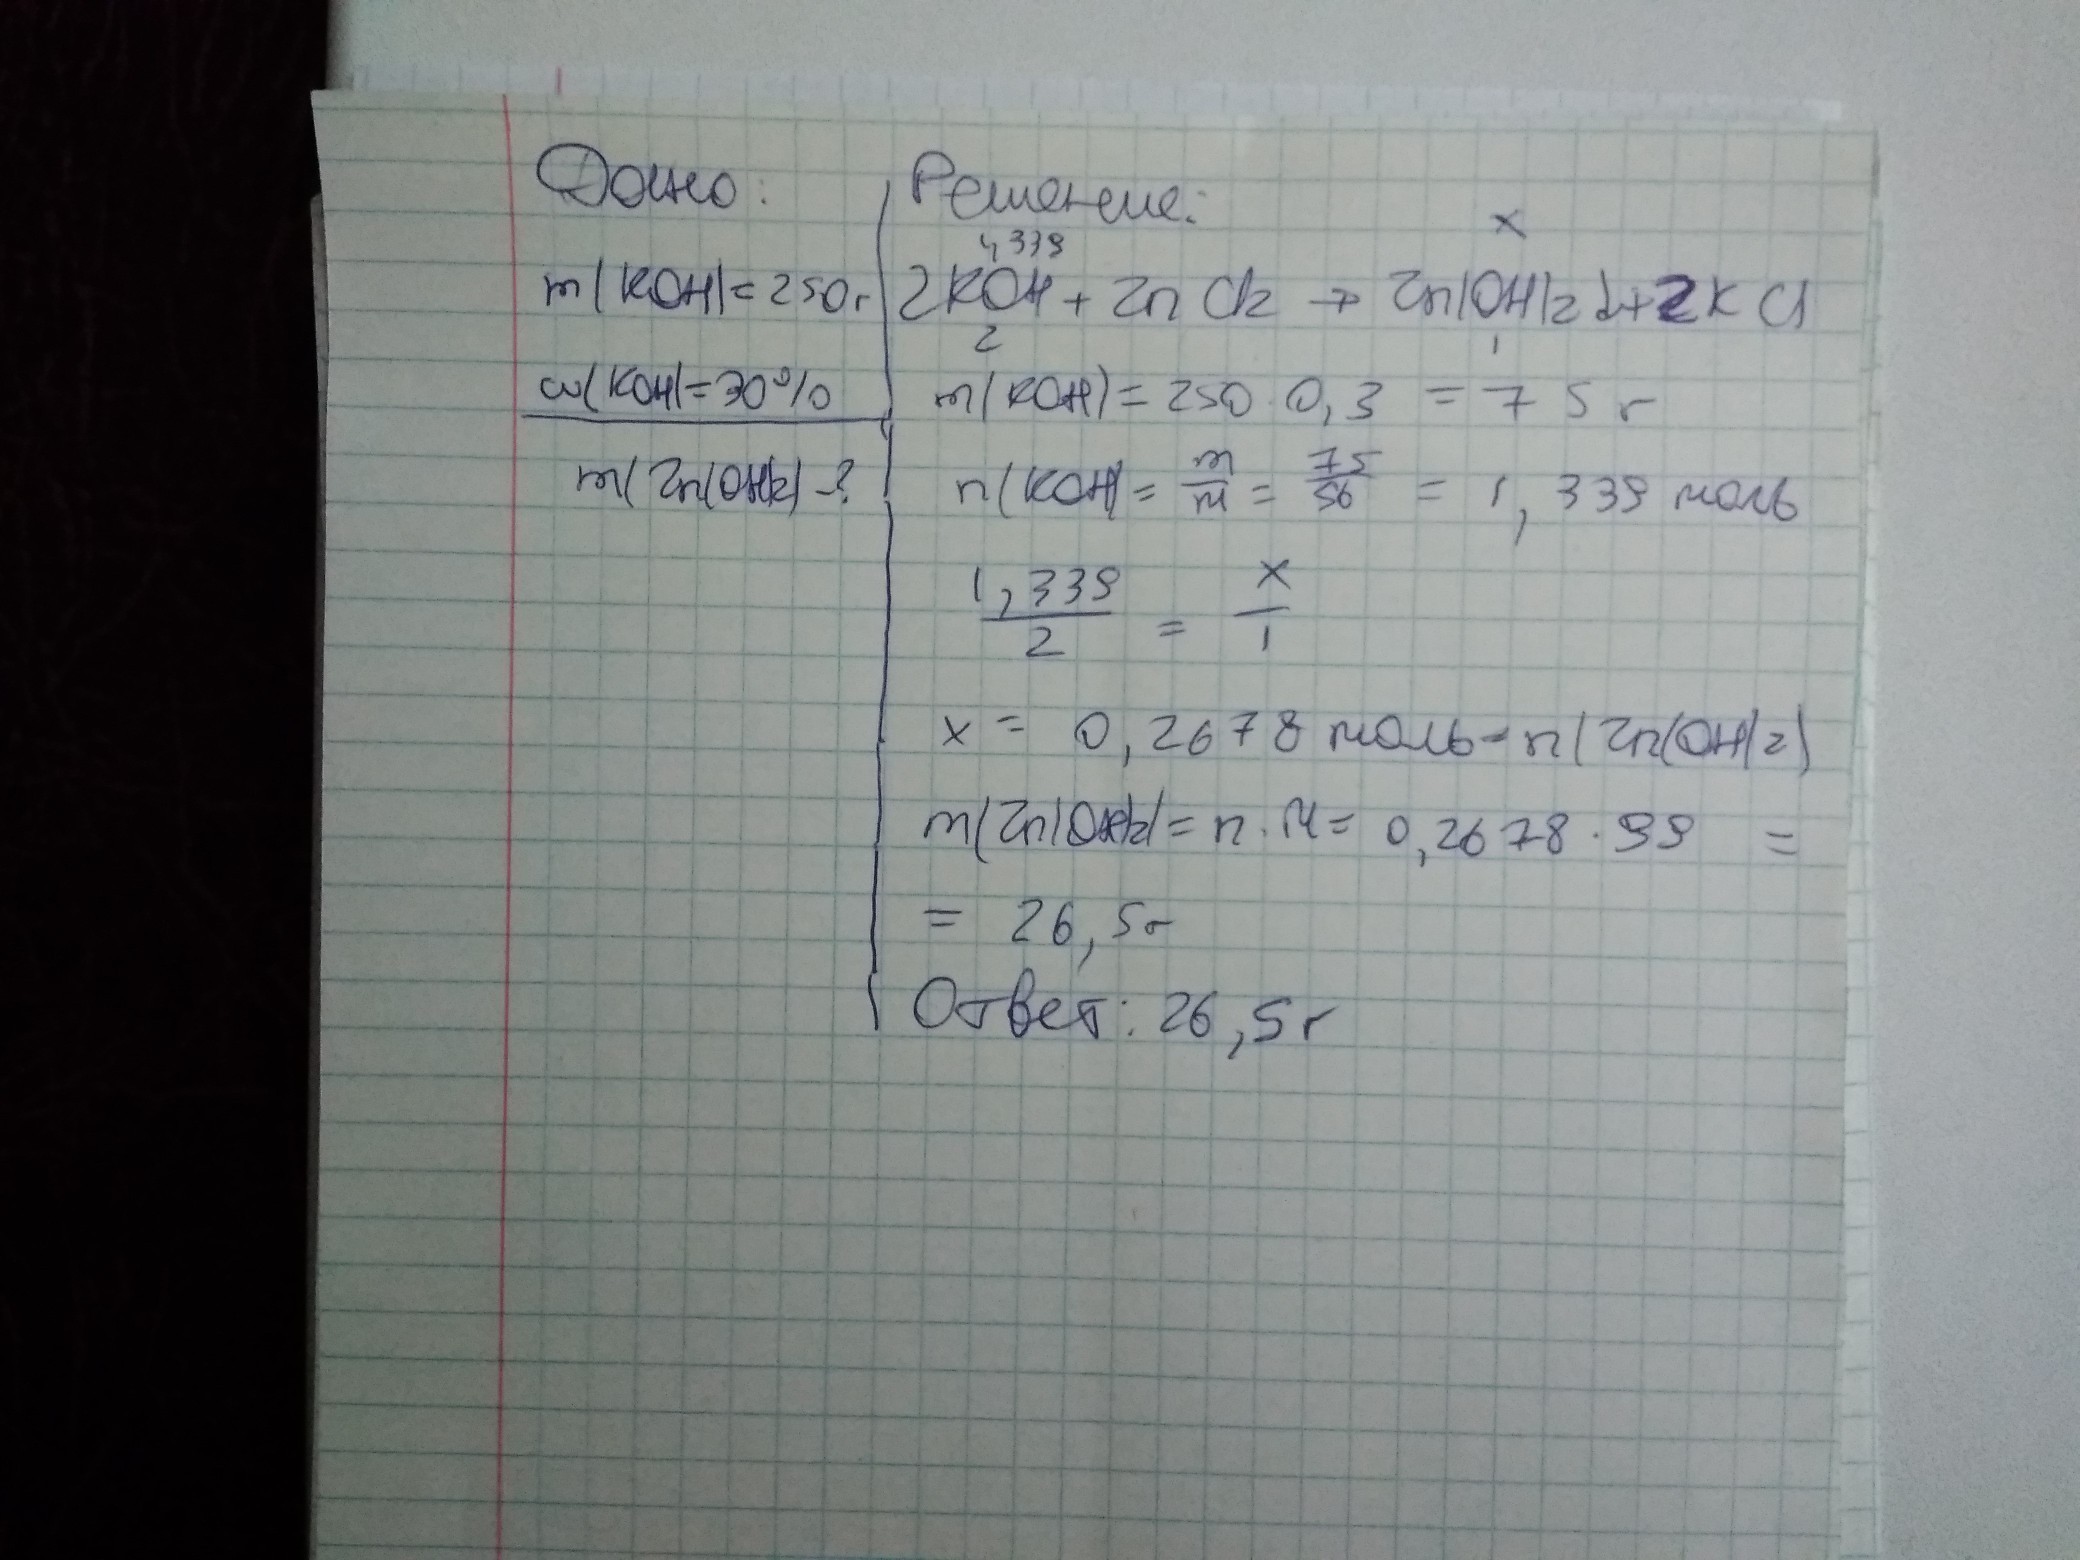 Дано:
m(KOH)=250г
ω(KOH)=30%
m(Zn(OH)2)-?
Решение:
1,339 x
2KOH + ZnCl2 → Zn(OH)2↓+2KCl
2 1
m(KOH)=250·0,3 = 75 г
n(KOH)= m/M = 75/56 = 1,339 моль
1,339/2 = x/1
x = 0,2678 моль-n(Zn(OH)2)
m(Zn(OH)2)=n·M= 0,2678·99 =
= 26,5г
Ответ: 26,5г